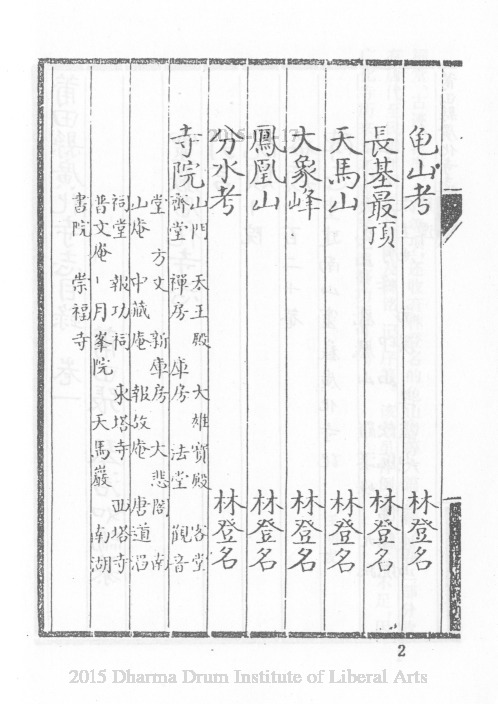 龟山考 林登名
長基最頂 林登名
天馬山 林登名
大象峰 林登名
鳳凰山 林登名
分水考 林登名
寺院
山門 天王殿 大雄寶殿 客堂
齊堂 禪房 庫房 法堂 觀音
堂 方丈 新庫房 大悲閣 南
山庵 中藏庵 報 庵 唐道
祠堂 報功祠 東塔寺 西塔寺
普文庵 月峯院 天馬巖 南湖
書院 崇福寺
2
2015 Dharma Drum Institute of Liberal Arts